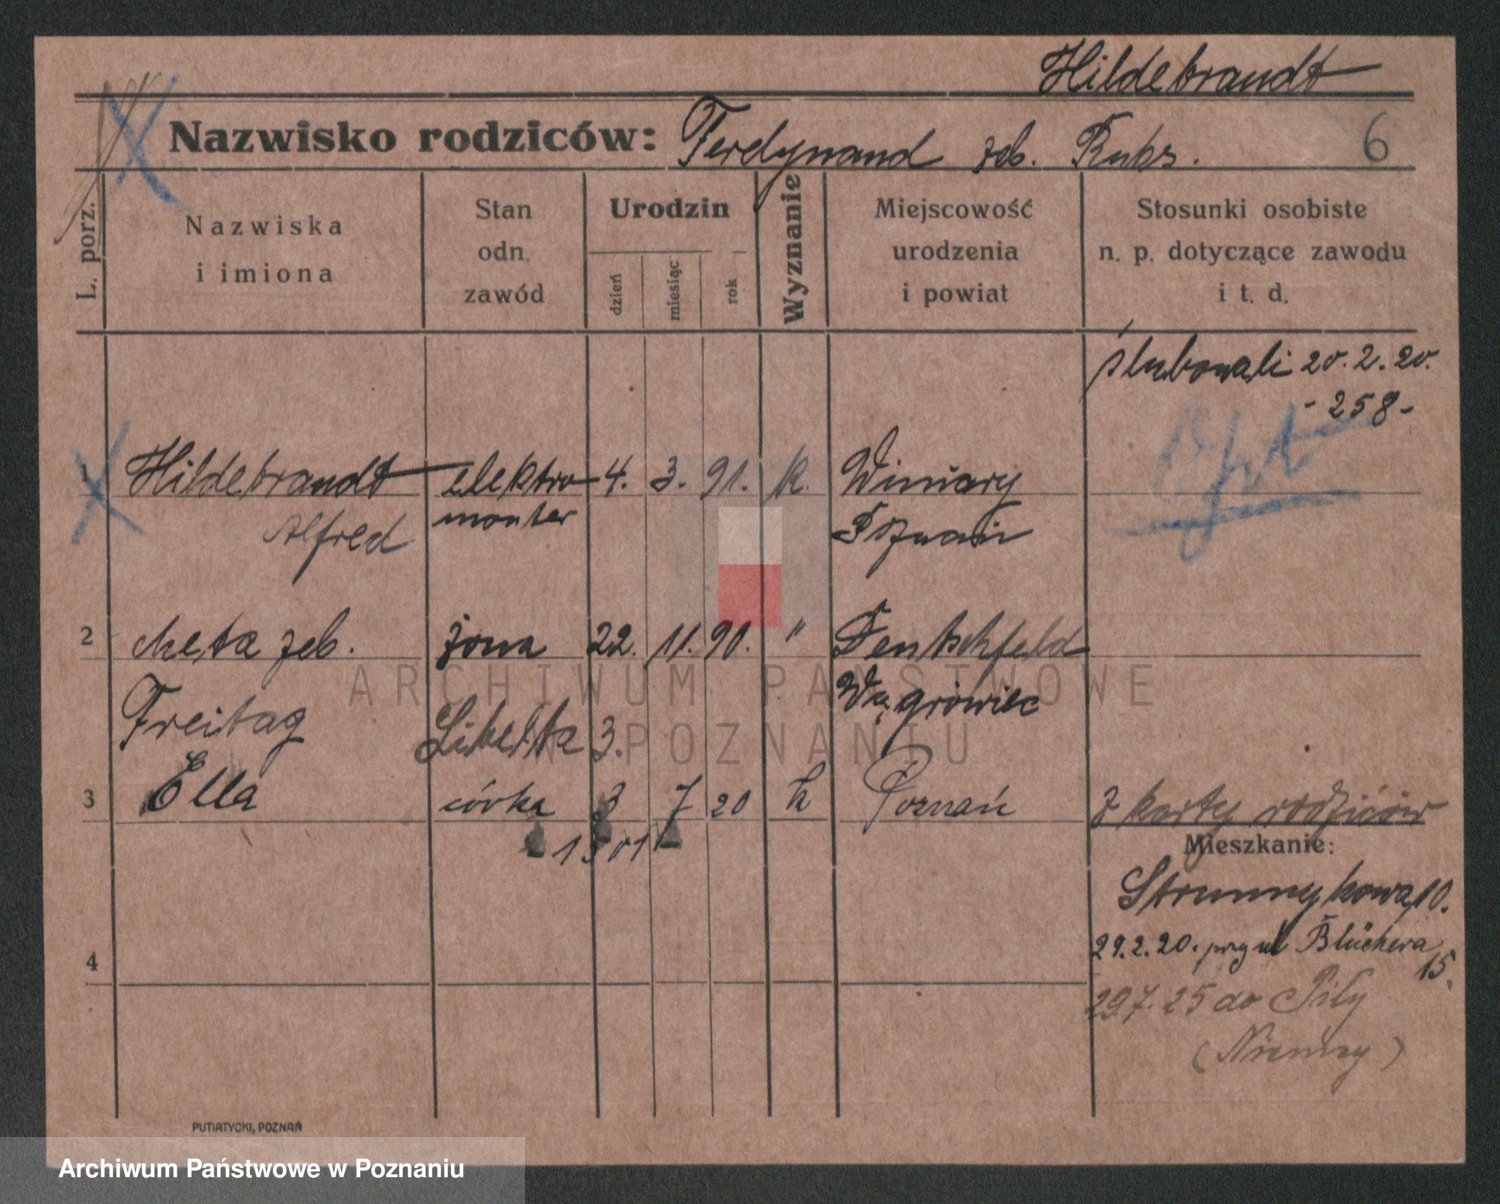 Hildebrandt
Nazwisko rodziców: Ferdynand zeb. Kubs.
6
L. porz.
Nazwiska
i imiona
Stan
odn.
zawód
Urodzin
dzień
miesiąc
rok
Wyznanie
Miejscowość
urodzenia
i powiat
Stosunki osobiste
n. p. dotyczące zawodu
i t. d.
ślubowali 20.2.20.
-258-
1 Hildebrandt elektro- 4. 3. 91. k. Winiary
Alfred monter Poznań
2 Meta zeb. żona 22. 11. 90. " Deutschfeld
Freitag Libelta 3. Wągrówiec
3 Ella córka 3 7 20 k Poznań z karty rodziców
1501
Mieszkanie:
Strumykowa 10.
29.2.20. przy ul Blüchera
15.
4
29.7.25 do Piły
(Niemcy)
PUTIATYCKI, POZNAŃ
ARCHIWUM PAŃSTWOWE
W POZNANIU
Archiwum Państwowe w Poznaniu